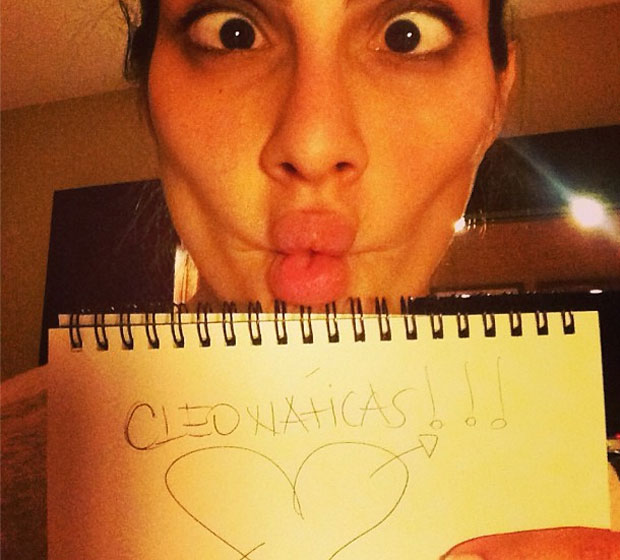 CLEOMÁTICAS!!!